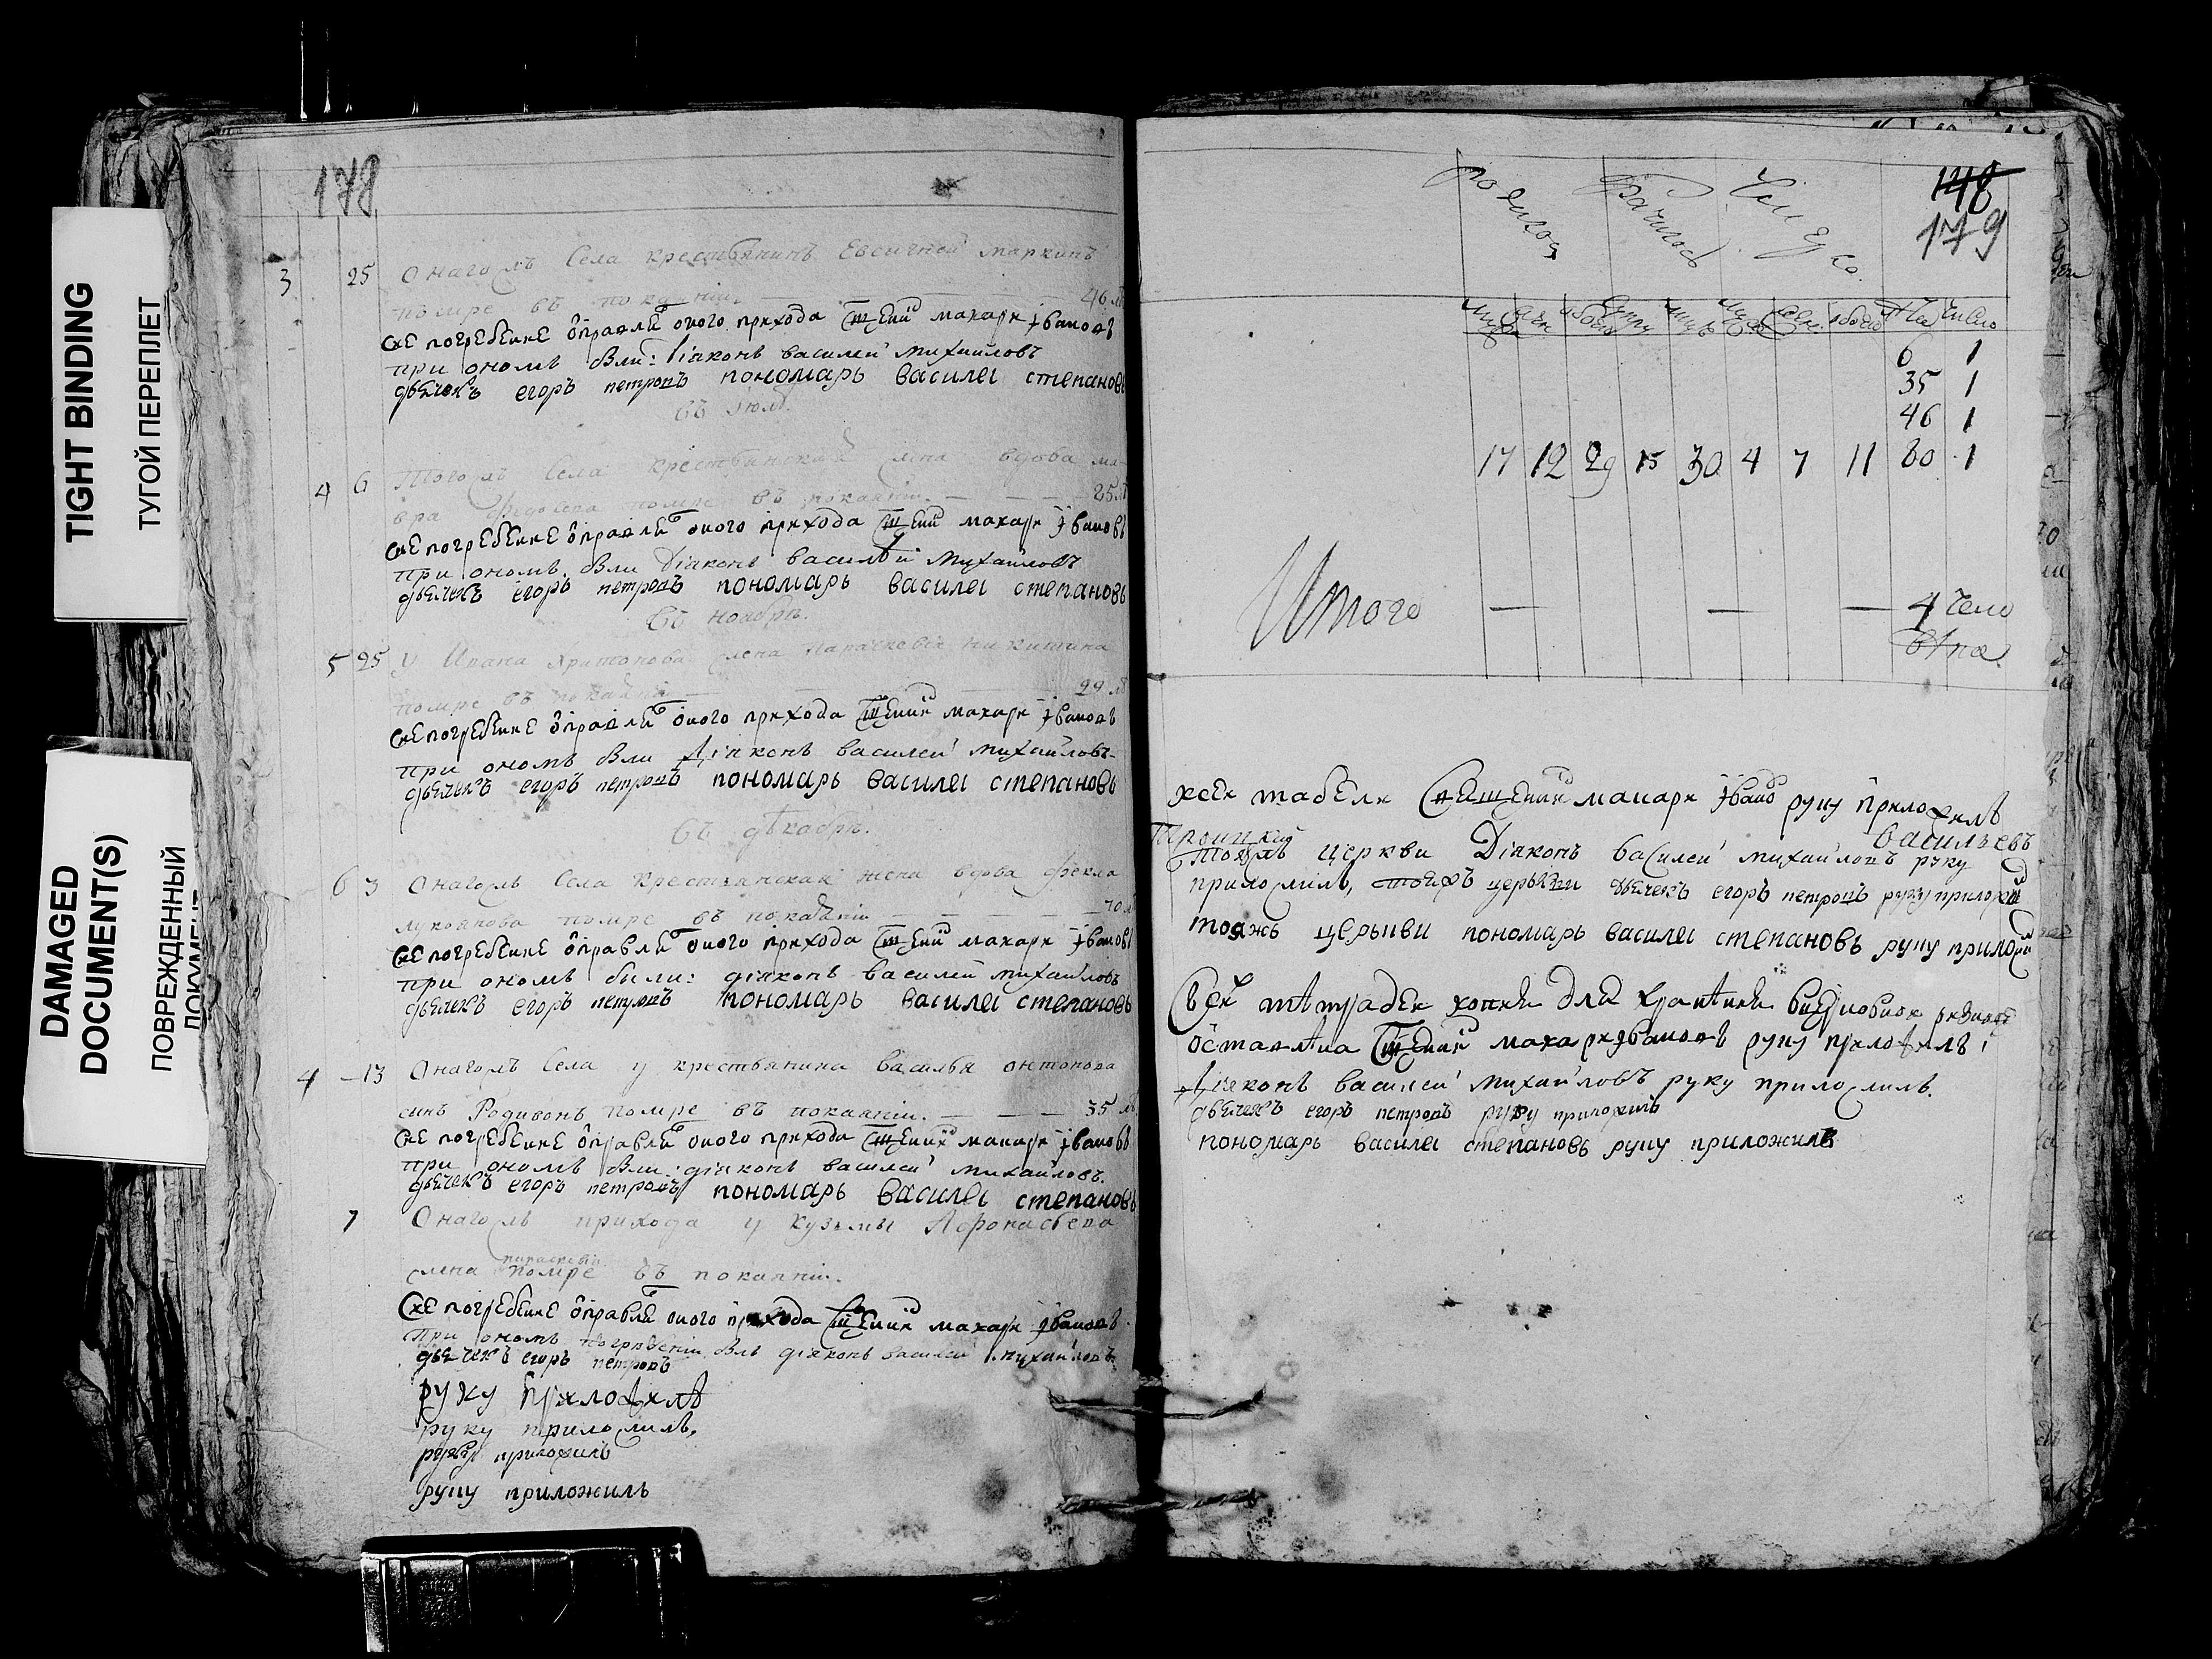 TIGHT BINDING
ТУГОЙ ПЕРЕПЛЕТ
DAMAGED
DOCUMENT(S)
ПОВРЕЖДЕННЫЙ
ДОКУМЕНТ
178
3 25 Онагожъ Села крестьянинъ Евсигней маркинъ
помре въ 46
сие погребение оправлял оного прихода макари Iвановъ
при ономъ были: дiяконъ василей михайловъ
дьячекъ егоръ петровъ пономарь василеi степановъ
въ июлѣ
4 6 Тогожъ Села крестьянская жена вдова
помре въ покаянiи. — — — 25
сие погребение оправлял оного прихода макари Iвановъ
при ономъ были дiяконъ василѣй михайловъ
дьячекъ егоръ петровъ пономарь василеi степановъ
въ ноябрѣ.
5 25 У Ивана жена Параскевiя никитина
помре въ покаянiи 29
сие погребение оправлял оного прихода макари Iвановъ
при ономъ были Дiяконъ василей михайловъ
дьячекъ егоръ петровъ пономарь василеi степановъ
въ декабрѣ.
6 3 Онагожъ Села крестьянская жена вдова фекла
лукоянова помре въ покаянiи — — — 70
сие погребение оправлял оного прихода макари Iвановъ
при ономъ были: дiяконъ василей михайловъ
дьячекъ егоръ петровъ пономарь василеi степановъ
4 — 13 Онагожъ Села у крестьянина василья онтонова
синъ Родивонъ помре въ покаянiи. — — — 35
сие погребение оправлял оного прихода макари Iвановъ
при ономъ были: дiяконъ василей михайловъ.
дьячекъ егоръ петровъ пономарь василеi степановъ
7 Онагожъ прихода у Кузьмы Афонасьева
жена помре въ покаянiи.
Сие погребение оправлял оного прихода макари Iвановъ
При ономъ погребенiи былъ дiяконъ василей михайловъ
дьячекъ егоръ петровъ
руку приложилъ
руку приложилъ,
руку приложилъ
руку приложилъ
148
179
родилося Бра­чилось Число
6 1
35 1
46 1
17 12 29 15 30 4 7 11 80 1
Итого — — — 4 чело
вѣка
табели макари Iвано руку приложилъ
Троицкой васильевъ
тояжъ церкви Дiяконъ василей михайловъ руку
приложилъ, тояжъ церькви дьячекъ егоръ петровъ руку приложил
тояжъ церькви пономарь василеi степановъ руку приложил
тетради копия для хранения
оставлена макари Iвановъ руку приложилъ
Дiяконъ василей михайловъ руку приложилъ.
дьячекъ егоръ петровъ руку приложилъ
пономарь василеi степановъ руку приложилъ